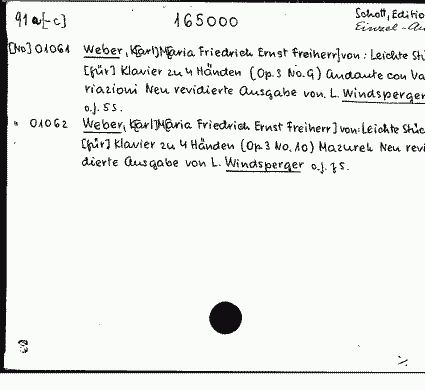 91a[-c] 165000 Schott, Editio
Einzel-Au
[No] 01061 Weber, K[arl] M[aria Friedrich Ernst Freiherr] von: Leichte Stü
[für] Klavier zu 4 Händen (Op. 3 No. 9) Andante con Va
riazioni Neu revidierte Ausgabe von L. Windsperger
o.J. 5 S.
" 01062 Weber, K[arl] M[aria Friedrich Ernst Freiherr] von: Leichte Stüc
[für] Klavier zu 4 Händen (Op. 3 No. 10) Mazurek Neu revi
dierte Ausgabe von L. Windsperger o.J. 7 S.